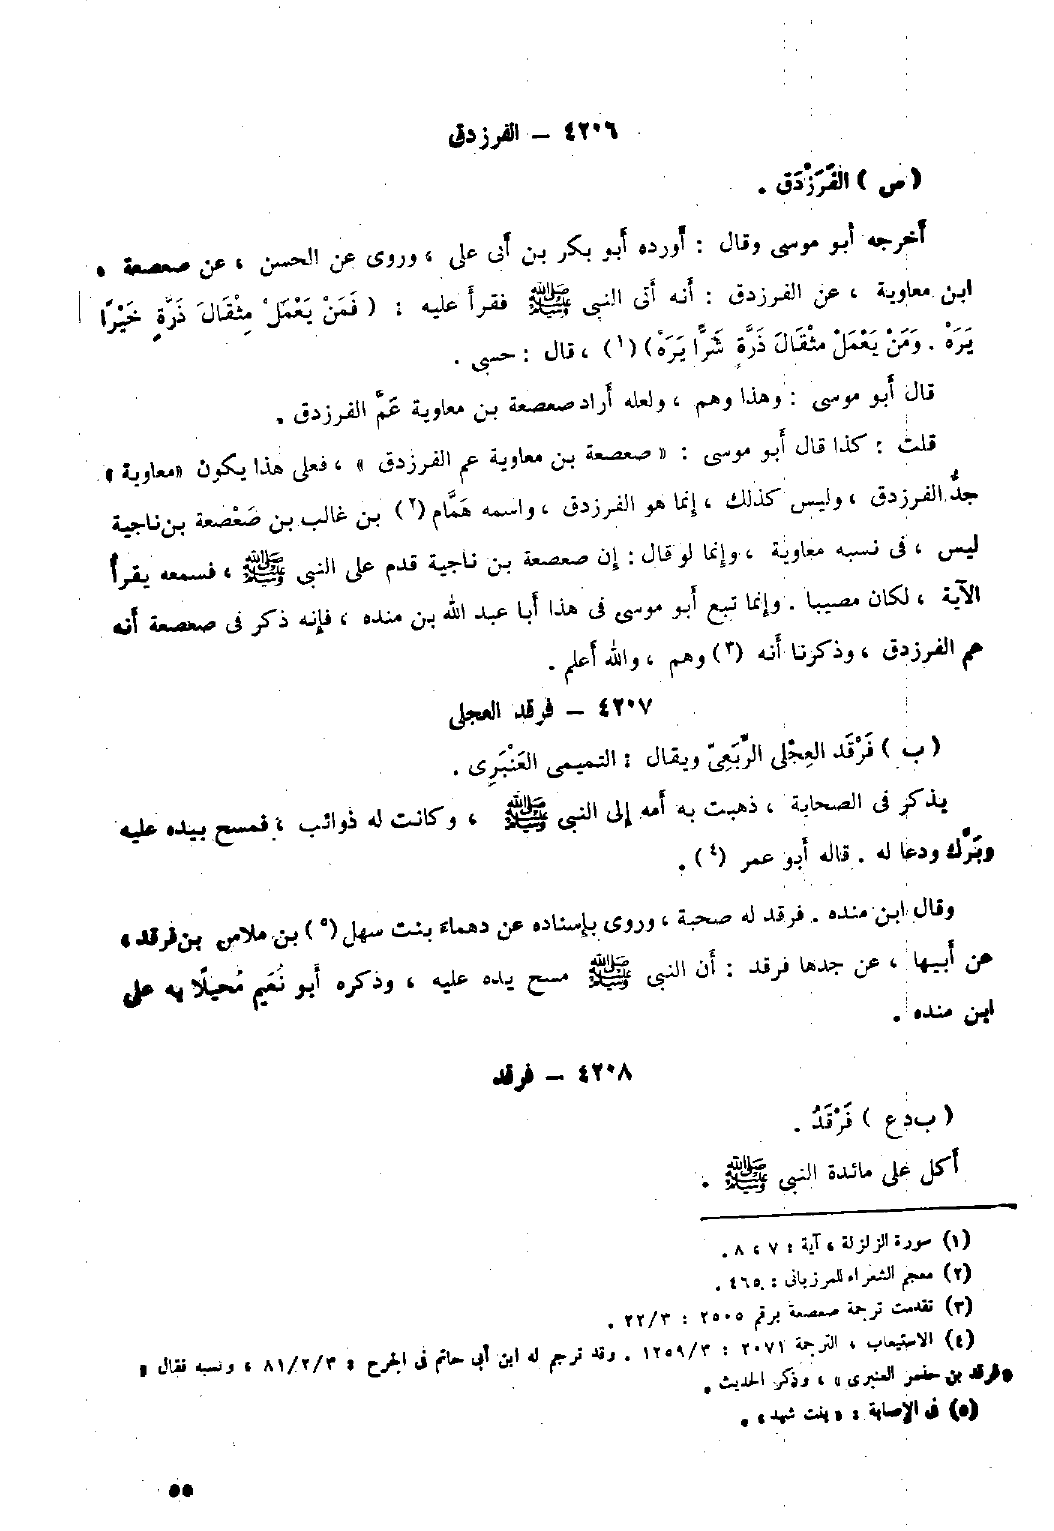 ٤٢٠٦ – الفرزدق
( س ) الفَرَزْدَق .
أخرجه أبو موسى وقال : أورده أبو بكر بن أبى على ، وروى عن الحسن ، عن صعصعة
ابن معاوية ، عن الفرزدق : أنه أتى النبى ﷺ فقرأ عليه : ( فَمَنْ يَعْمَلْ مِثْقَالَ ذَرَّةٍ خَيْرًا
يَرَهْ . وَمَنْ يَعْمَلْ مثْقَالَ ذَرَّةٍ شَرًّا يَرَهْ) (١) ، قال : حسبى .
قال أبو موسى : وهذا وهم ، ولعله أراد صعصعة بن معاوية عَمَّ الفرزدق .
قلت : كذا قال أبو موسى : « صعصعة بن معاوية عم الفرزدق » ، فعلى هذا يكون «معاوية»
جدُّ الفرزدق ، وليس كذلك ، إنما هو الفرزدق ، واسمه هَمَّام (٢) بن غالب بن صَعْصعة بن ناجية
ليس ، فى نسبه معاوية ، وإنما لو قال : إن صعصعة بن ناجية قدم على النبى ﷺ ، فسمعه يقرأ
الآية ، لكان مصيبا . وإنما تبع أبو موسى فى هذا أبا عبد الله بن منده ، فإنه ذكر فى صعصعة أنه
عم الفرزدق ، وذكرنا أنه (٣) وهم ، والله أعلم .
٤٢٠٧ – فرقد العجلى
( ب ) فَرْقَد العِجْلى الرَّبَعِىّ ويقال : التميمى العَنْبَرِى .
يذكر فى الصحابة ، ذهبت به أمه إلى النبى ﷺ ، وكانت له ذوائب ، فمسح بيده عليه
وبَرَّك ودعا له . قاله أبو عمر (٤) .
وقال ابن منده . فرقد له صحبة ، وروى بإسناده عن دهماء بنت سهل (٥) بن ملاس بن فرقد ،
عن أبيها ، عن جدها فرقد : أن النبى ﷺ مسح يده عليه ، وذكره أبو نُعَيم مُحيلًا به على
ابن منده .
٤٢٠٨ – فرقد
( ب د ع ) فَرْقَدُ .
أكل على مائدة النبى ﷺ .
(١) سورة الزلزلة ، آية : ٧ ، ٨ .
(٢) معجم الشعراء للمرزبانى : ٤٦٥ .
(٣) تقدمت ترجمة صعصعة برقم ٢٥٠٥ : ٢٢/٣ .
(٤) الاستيعاب ، الترجمة ٢٠٧١ : ١٢٥٩/٣ . وقد ترجم له ابن أبى حاتم فى الجرح : ٨١/٢/٣ ، ونسبه فقال :
«فرقد بن العنبرى» ، وذكر الحديث .
(٥) فى الإصابة : « بنت شهد» .
٥٥